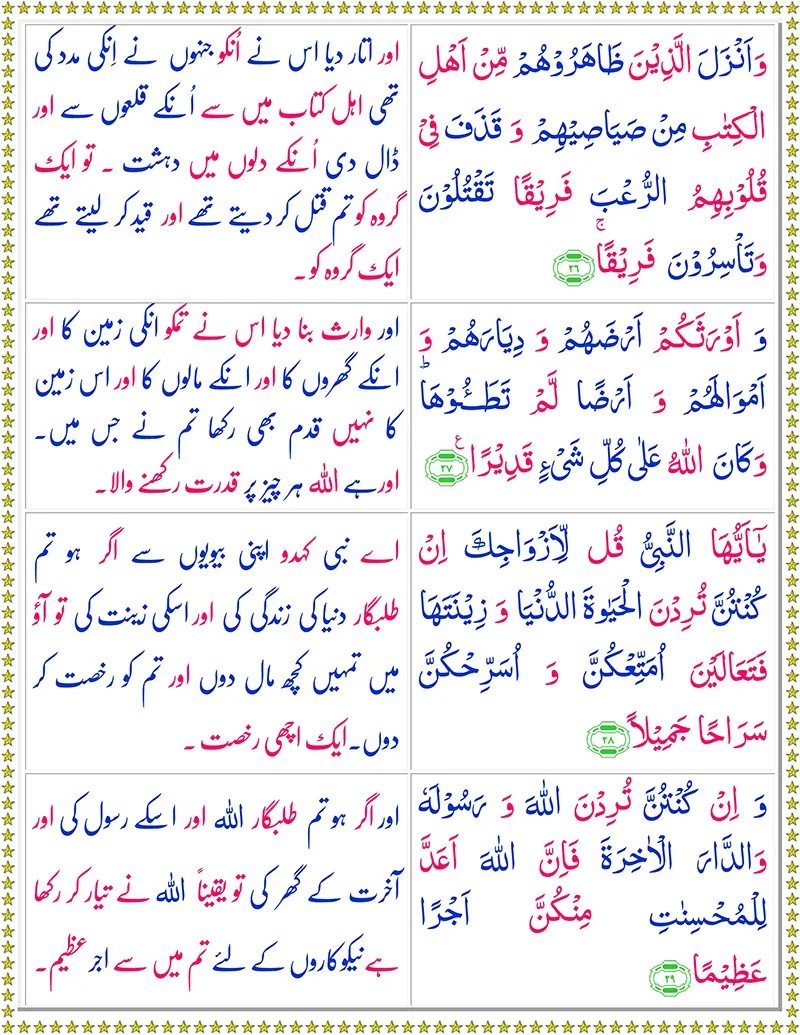 وَاَنْزَلَ الَّذِيْنَ ظَاهَرُوْهُمْ مِّنْ اَهْلِ
الْكِتٰبِ مِنْ صَيَاصِيْهِمْ وَ قَذَفَ فِيْ
قُلُوْبِهِمُ الرُّعْبَ فَرِيْقًا تَقْتُلُوْنَ
وَتَاْسِرُوْنَ فَرِيْقًاۚ ﴿۲۶﴾
اور اتار دیا اس نے اُنکو جنہوں نے اِنکی مدد کی
تھی اہل کتاب میں سے اُنکے قلعوں سے اور
ڈال دی اُنکے دلوں میں دہشت ۔ تو ایک
گروہ کو تم قتل کر دیتے تھے اور قید کر لیتے تھے
ایک گروہ کو۔
وَ اَوْرَثَكُمْ اَرْضَهُمْ وَ دِيَارَهُمْ وَ
اَمْوَالَهُمْ وَ اَرْضًا لَّمْ تَطَـُٔوْهَاؕ
وَكَانَ اللّٰهُ عَلٰى كُلِّ شَيْءٍ قَدِيْرًاع ﴿۲۷﴾
اور وارث بنا دیا اس نے تمکو انکی زمین کا اور
انکے گھروں کا اور انکے مالوں کا اور اس زمین
کا نہیں قدم بھی رکھا تم نے جس میں۔
اور ہے اللہ ہر چیز پر قدرت رکھنے والا۔
يٰۤاَيُّهَا النَّبِيُّ قُل لِّاَزْوَاجِكَ اِنْ
كُنْتُنَّ تُرِدْنَ الْحَيٰوةَ الدُّنْيَا وَ زِيْنَتَهَا
فَتَعَالَيْنَ اُمَتِّعْكُنَّ وَ اُسَرِّحْكُنَّ
سَرَاحًا جَمِيْلًا ﴿۲۸﴾
اے نبی کہدو اپنی بیویوں سے اگر ہو تم
طلبگار دنیا کی زندگی کی اور اسکی زینت کی تو آؤ
میں تمہیں کچھ مال دوں اور تم کو رخصت کر
دوں۔ ایک اچھی رخصت ۔
وَ اِنْ كُنْتُنَّ تُرِدْنَ اللّٰهَ وَ رَسُوْلَهٗ
وَالدَّارَ الْاٰخِرَةَ فَاِنَّ اللّٰهَ اَعَدَّ
لِلْمُحْسِنٰتِ مِنْكُنَّ اَجْرًا
عَظِيْمًا ﴿۲۹﴾
اور اگر ہو تم طلبگار اللہ اور اسکے رسول کی اور
آخرت کے گھر کی تو یقیناً اللہ نے تیار کر رکھا
ہے نیکوکاروں کے لئے تم میں سے اجر عظیم۔